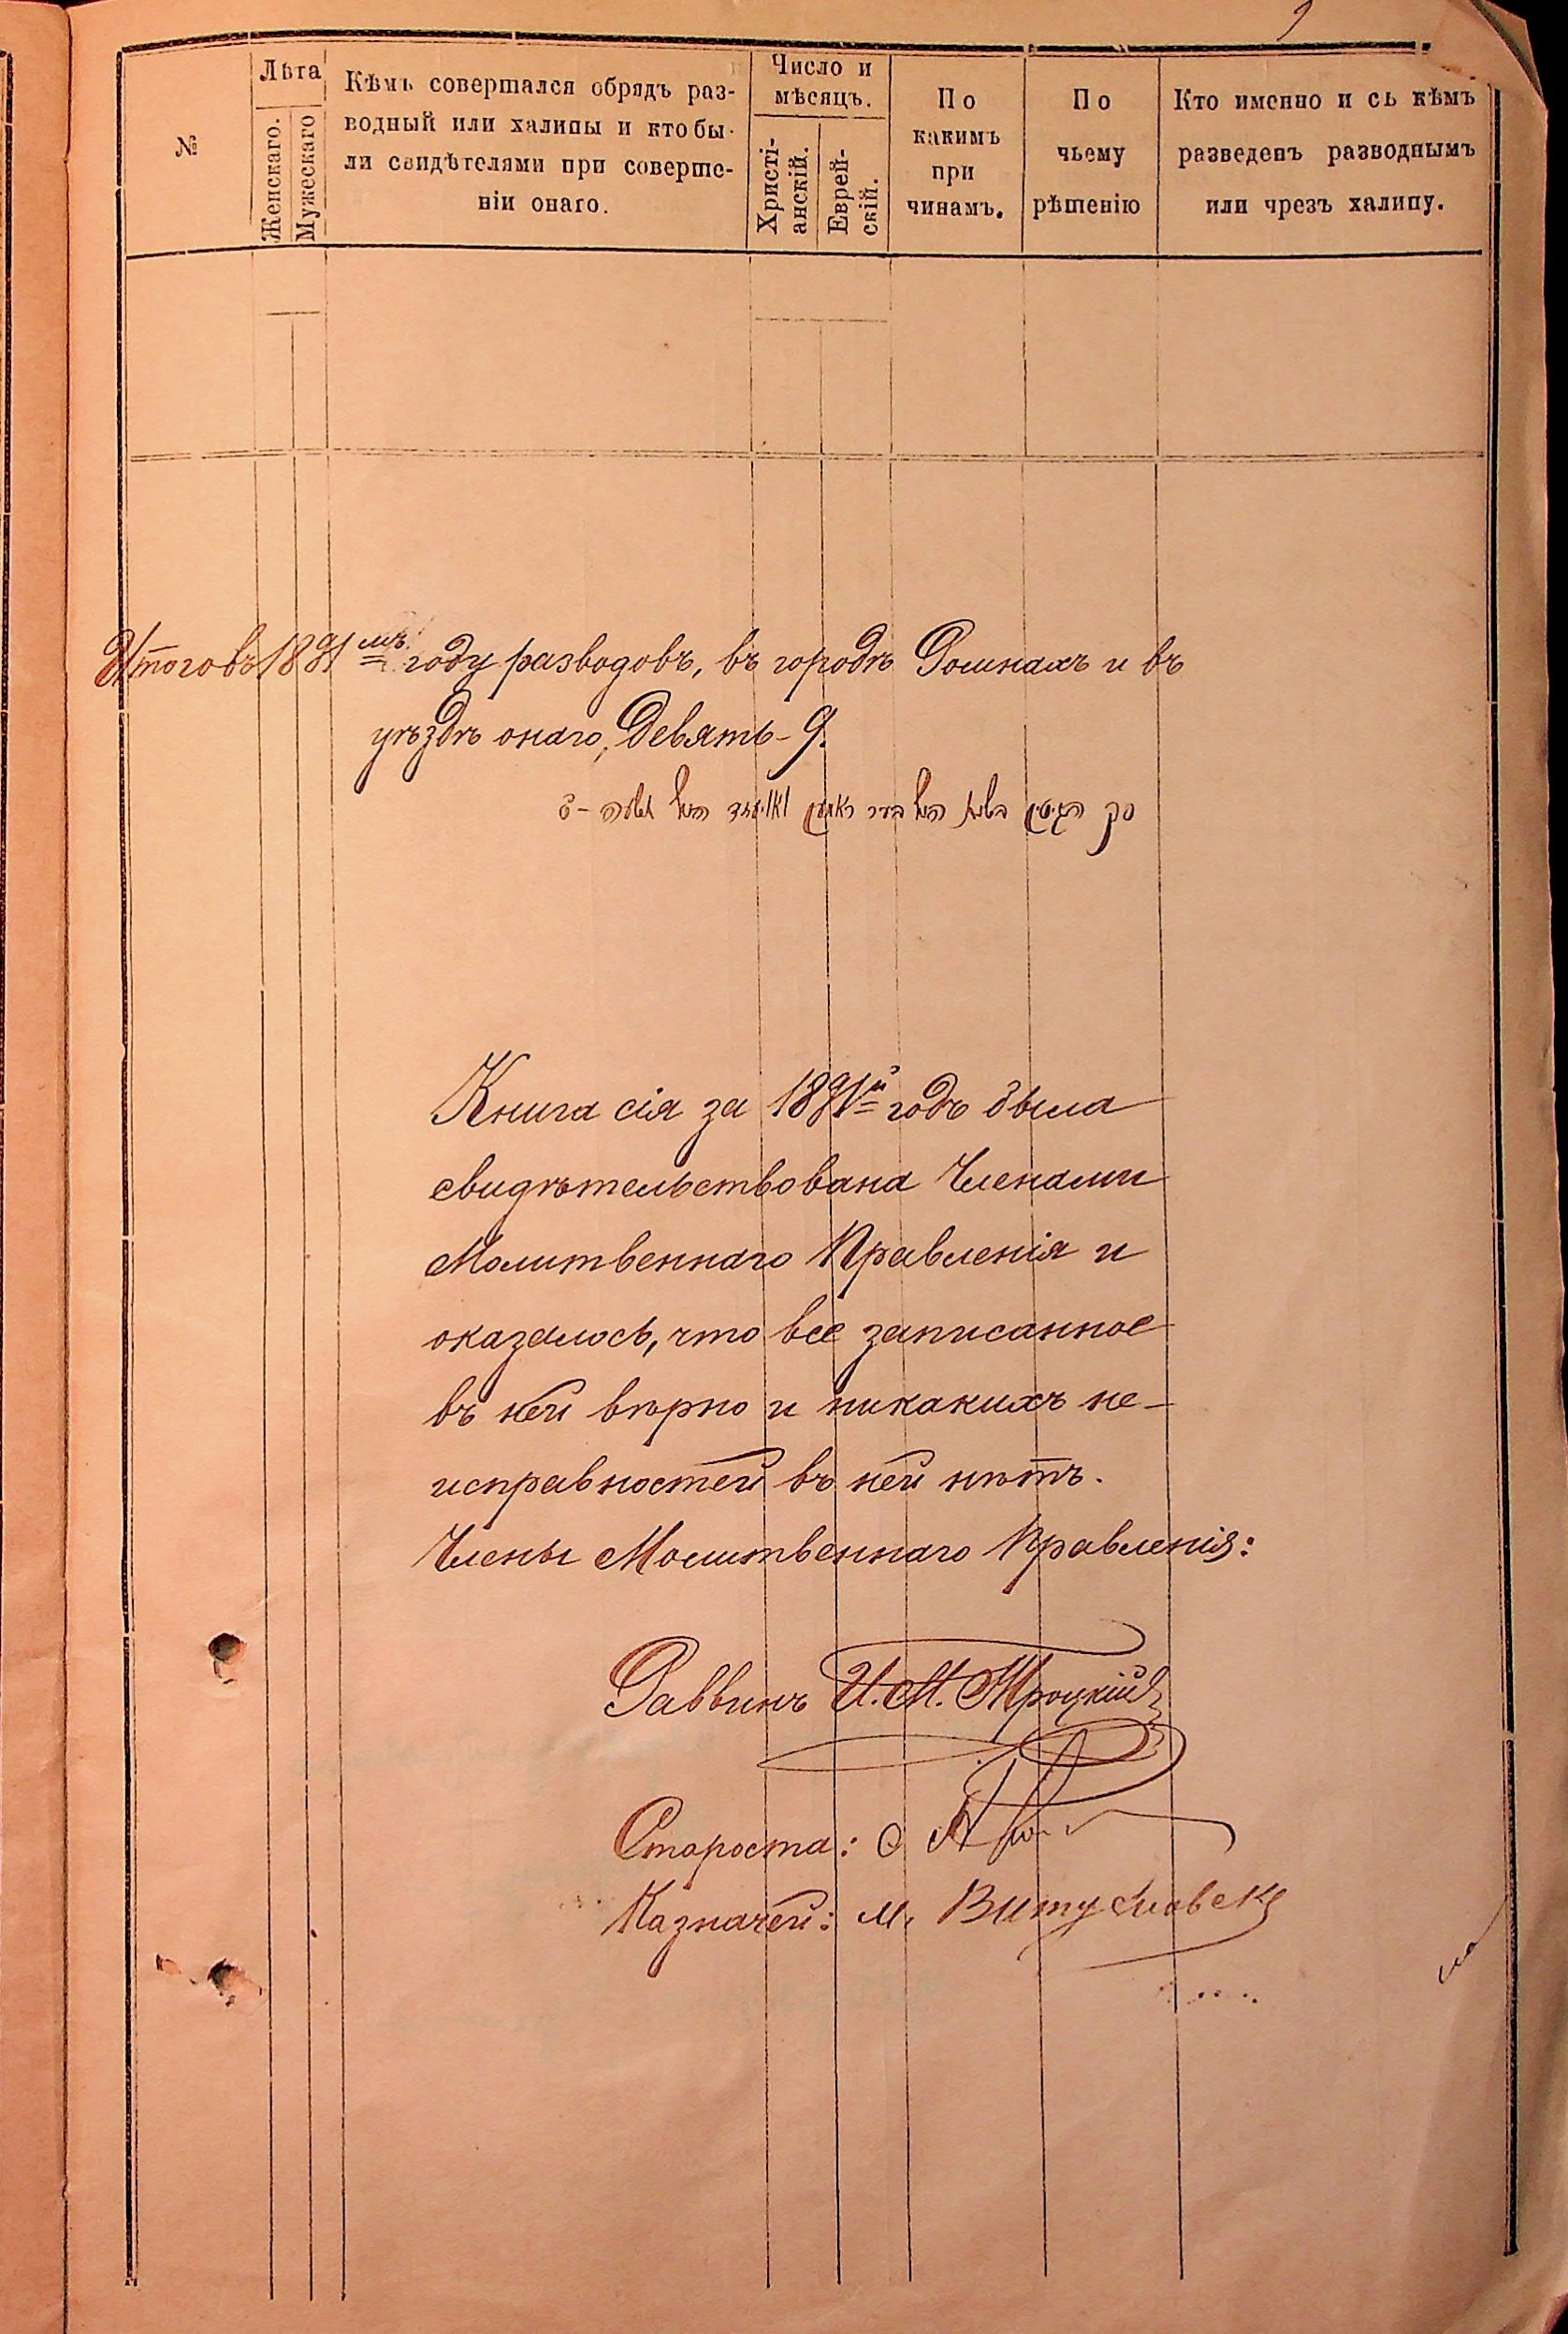 9
№
Лѣта
Женскаго.
Мужескаго
Кѣмъ совершался обрядъ раз-
водный или халицы и кто бы-
ли свидѣтелями при соверше-
ніи онаго.
Число и
мѣсяцъ.
Христі-
анскій.
Еврей-
скій.
По
какимъ
при
чинамъ.
По
чьему
рѣшенію
Кто именно и съ кѣмъ
разведенъ разводнымъ
или чрезъ халицу.
Итого въ 1891мъ году разводовъ, въ городѣ Ромнахъ и въ
уѣздѣ онаго, девять - 9.
Книга сія за 1891й годъ была
свидѣтельствована Членами
Молитвеннаго Правленія и
оказалось, что все записанное
въ ней вѣрно и никакихъ не-
исправностей въ ней нѣтъ.
Члены Молитвеннаго Правленія:
Раввинъ И. М. Троцкій
Староста:
Казначей: М.